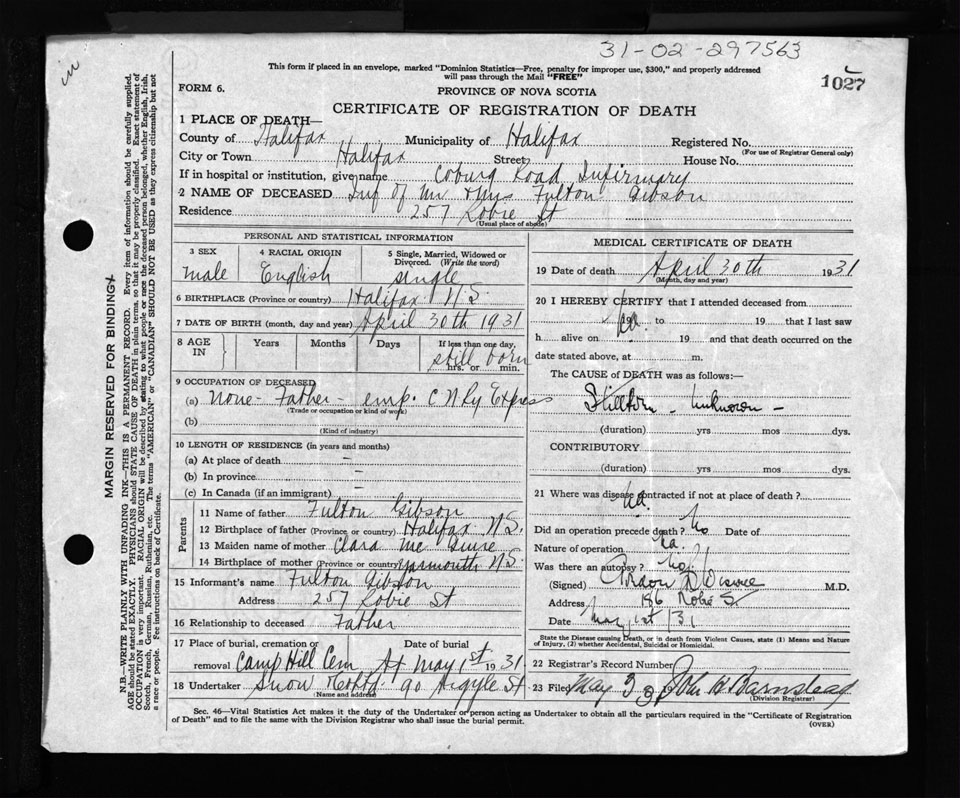 31-02-297563
in
This form if placed in an envelope, marked "Dominion Statistics—Free, penalty for improper use, $300," and properly addressed
will pass through the Mail "FREE"
1027
FORM 6.
PROVINCE OF NOVA SCOTIA
CERTIFICATE OF REGISTRATION OF DEATH
1 PLACE OF DEATH—
County of Halifax Municipality of Halifax Registered No.
(For use of Registrar General only)
City or Town Halifax Street House No.
If in hospital or institution, give name Coburg Road Infirmary
2 NAME OF DECEASED Inf of Mr & Mrs Fulton Gibson
Residence 257 Robie St
(Usual place of abode)
PERSONAL AND STATISTICAL INFORMATION
3 SEX 4 RACIAL ORIGIN 5 Single, Married, Widowed or
Divorced. (Write the word)
male English single
6 BIRTHPLACE (Province or country) Halifax N.S
7 DATE OF BIRTH (month, day and year) April 30th 1931
8 AGE IN Years Months Days If less than one day,
still born
hrs. or min.
9 OCCUPATION OF DECEASED
(a) None - Father - emp. C N Ry Express
(Trade or occupation or kind of work)
(b)
(Kind of industry)
10 LENGTH OF RESIDENCE (in years and months)
(a) At place of death —
(b) In province —
(c) In Canada (if an immigrant) —
Parents
11 Name of father Fulton Gibson
12 Birthplace of father (Province or country) Halifax N.S.
13 Maiden name of mother Clara Mc Guire
14 Birthplace of mother (Province or country) Yarmouth N.S
15 Informant's name Fulton Gibson
Address 257 Robie St
16 Relationship to deceased Father
17 Place of burial, cremation or Date of burial
removal Camp Hill Cem At May 1st 1931
18 Undertaker Snow & Co Ltd. 90 Argyle St
Name and address
MEDICAL CERTIFICATE OF DEATH
19 Date of death April 30th 1931
(Month, day and year)
20 I HEREBY CERTIFY that I attended deceased from
19 to 19 that I last saw
h alive on 19 and that death occurred on the
date stated above, at m.
The CAUSE of DEATH was as follows:—
Stillborn - unknown -
(duration) yrs mos dys.
CONTRIBUTORY
(duration) yrs mos dys.
21 Where was disease contracted if not at place of death? na.
Did an operation precede death? No Date of
Nature of operation na.
Was there an autopsy? No.
(Signed) M.D.
Address 186 Robie St.
Date May 1st/31
State the Disease causing Death, or in death from Violent Causes, state (1) Means and Nature
of Injury, (2) whether Accidental, Suicidal or Homicidal.
22 Registrar's Record Number
23 Filed May 5 John B Barnstead
(Division Registrar)
Sec. 46—Vital Statistics Act makes it the duty of the Undertaker or person acting as Undertaker to obtain all the particulars required in the "Certificate of Registration
of Death" and to file the same with the Division Registrar who shall issue the burial permit.
(OVER)
MARGIN RESERVED FOR BINDING
N.B.—WRITE PLAINLY WITH UNFADING INK—THIS IS A PERMANENT RECORD. Every item of information should be carefully supplied.
AGE should be stated EXACTLY. PHYSICIANS should STATE CAUSE OF DEATH in plain terms, so that it may be properly classified. Exact statement of
OCCUPATION is very important. RACIAL ORIGIN will be described by stating to what people or race the deceased person belonged, whether English, Irish,
Scotch, French, German, Russian, Ruthenian, etc. The terms "AMERICAN" or "CANADIAN" SHOULD NOT BE USED as they express citizenship but not
a race or people. See instructions on back of Certificate.